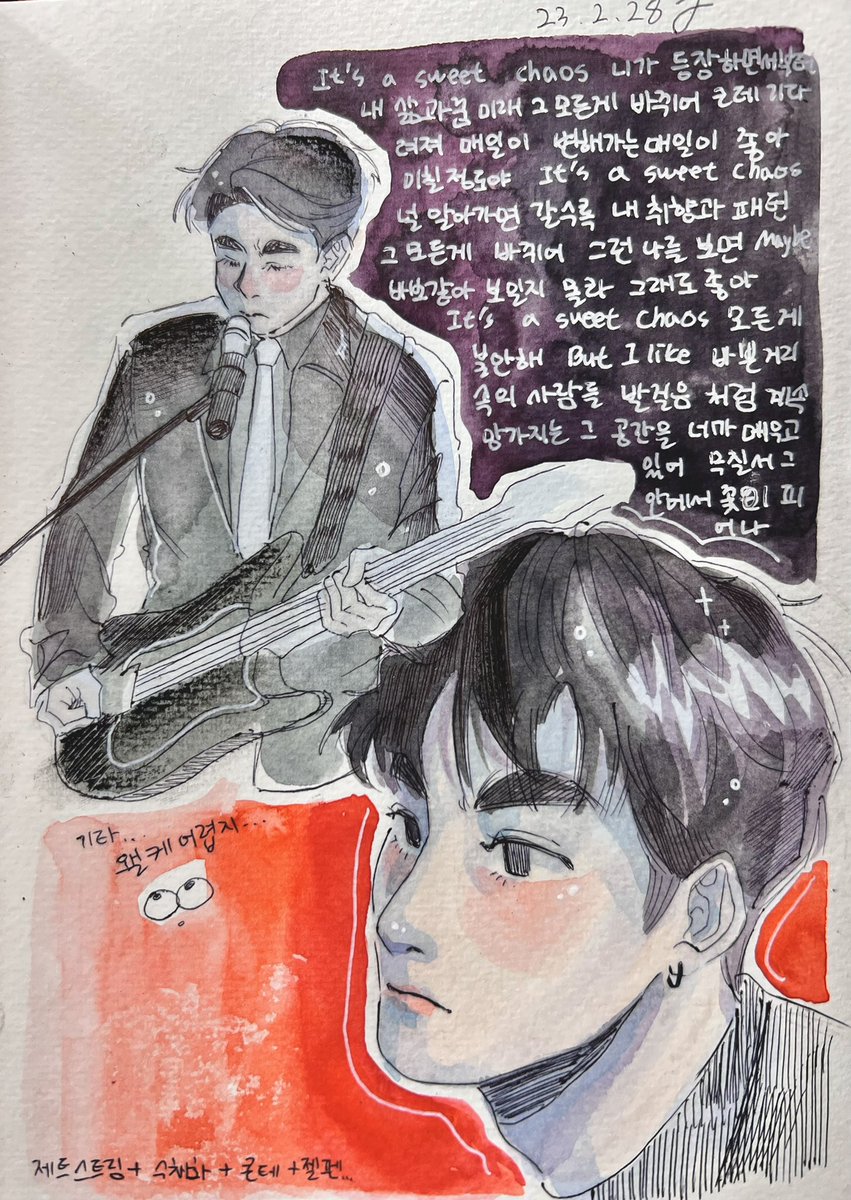 23.2.28
It's a sweet chaos 니가 등장하면서부터
내 삶과 꿈 미래 그 모든게 바뀌어 근데 기다
려져 매일이 변해가는 매일이 좋아
미친정도야 It's a sweet chaos
널 알아가면 갈수록 내 취향과 패턴
그 모든게 바뀌어 그런 나를 보면 Maybe
바보같아 보일지 몰라 그래도 좋아
It's a sweet chaos 모든게
불안해 But I like 바쁜거리
속의 사람들 발걸음 처럼 계속
망가지는 그 공간을 너가 매우고
있어 무질서 그
안에서 꽃이 피
어나
기타...
왤케 어렵지...
제트스트링 + 수채화 + 콘테 + 젤펜...